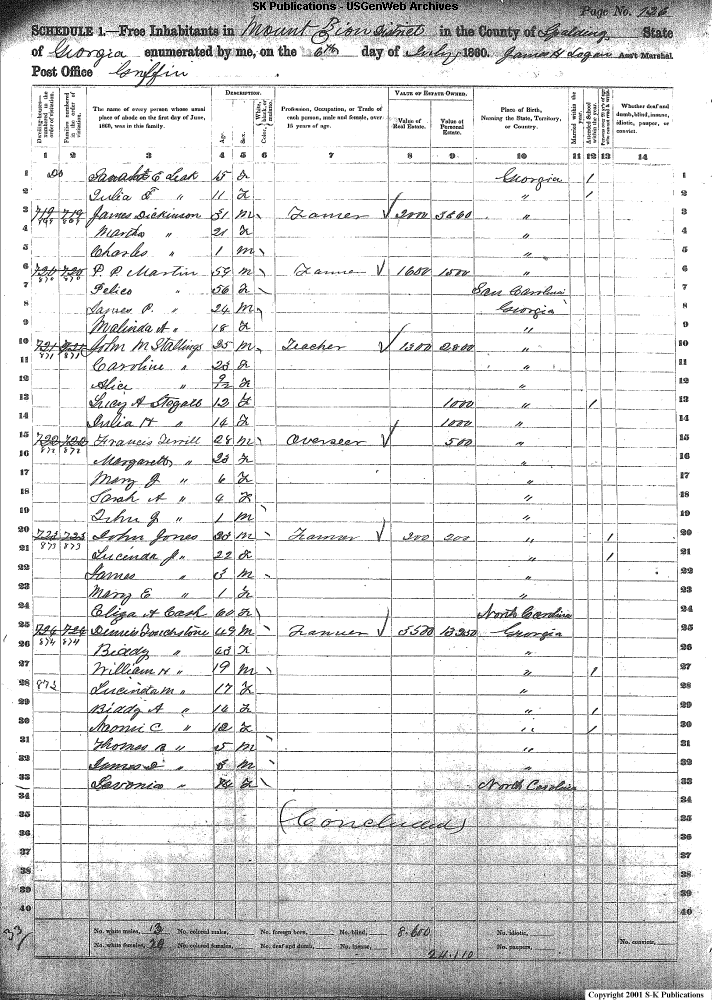 SK Publications - USGenWeb Archives
Page No. 126
SCHEDULE 1.—Free Inhabitants in Mount Zion District in the County of Spalding State
of Georgia enumerated by me, on the 6th day of July 1860. James H Logan Ass't Marshal
Post Office Griffin
Dwelling-houses—numbered in the order of visitation.
Families numbered in the order of visitation.
The name of every person whose usual place of abode on the first day of June, 1860, was in this family.
DESCRIPTION.
Age.
Sex.
Color, White, black, or mulatto.
Profession, Occupation, or Trade of each person, male and female, over 15 years of age.
VALUE OF ESTATE OWNED.
Value of Real Estate.
Value of Personal Estate.
Place of Birth, Naming the State, Territory, or Country.
Married within the year.
Attended School within the year.
Whether deaf and dumb, blind, insane, idiotic, pauper, or convict.
1 2 3 4 5 6 7 8 9 10 11 12 13 14
1 E Leak 15 F Georgia / 1
2 Julia F " 11 F " / 2
3 719 719 James Dickinson 31 M Farmer 2000 " 3
4 Martha " 21 F " 4
5 Charles " 1 M " 5
6 720 720 P. P. Martin 59 M Farmer 1600 1500 " 6
870 870
7 " 56 F Carolina 7
8 James P. " 24 M Georgia 8
9 Malinda A " 18 F " 9
10 721 721 John M Stallings 35 M Teacher 1300 2800 " 10
871 871
11 Caroline " 23 F " 11
12 Alice " 9/12 F " 12
13 Lucy A Stegall 12 F 1000 " / 13
14 Julia H " 14 F 1000 " 14
15 722 722 Francis Terrill 28 M Overseer 500 " 15
872 872
16 " 23 F " 16
17 Mary J " 6 F " 17
18 Sarah A " 4 F " 18
19 John J " 1 M " 19
20 723 723 John Jones 23 M Farmer 200 200 " / 20
873 873
21 Lucinda J " 22 F " / 21
22 James " 3 M " 22
23 Mary E " 1 F " 23
24 Eliza A Cash 60 F North Carolina 24
25 724 724 Touchstone 49 M Farmer 5500 13250 Georgia 25
874 874
26 Biddy " 43 F " 26
27 William H " 19 M " / 27
28 Lucinda M " 17 F " 28
29 Biddy A " 14 F " / 29
30 Naomi C " 12 F " / 30
31 Thomas B " 5 M " 31
32 James " M " 32
33 " 74 F North Carolina 33
34 34
35 (Concluded) 35
36 36
37 37
38 38
39 39
40 40
33
No. white males, 13 No. colored males, No. foreign born, No. blind, No. idiotic,
No. white females, 20 No. colored females, No. deaf and dumb, No. insane, No. paupers, No. convicts,
24.110
Copyright 2001 S-K Publications